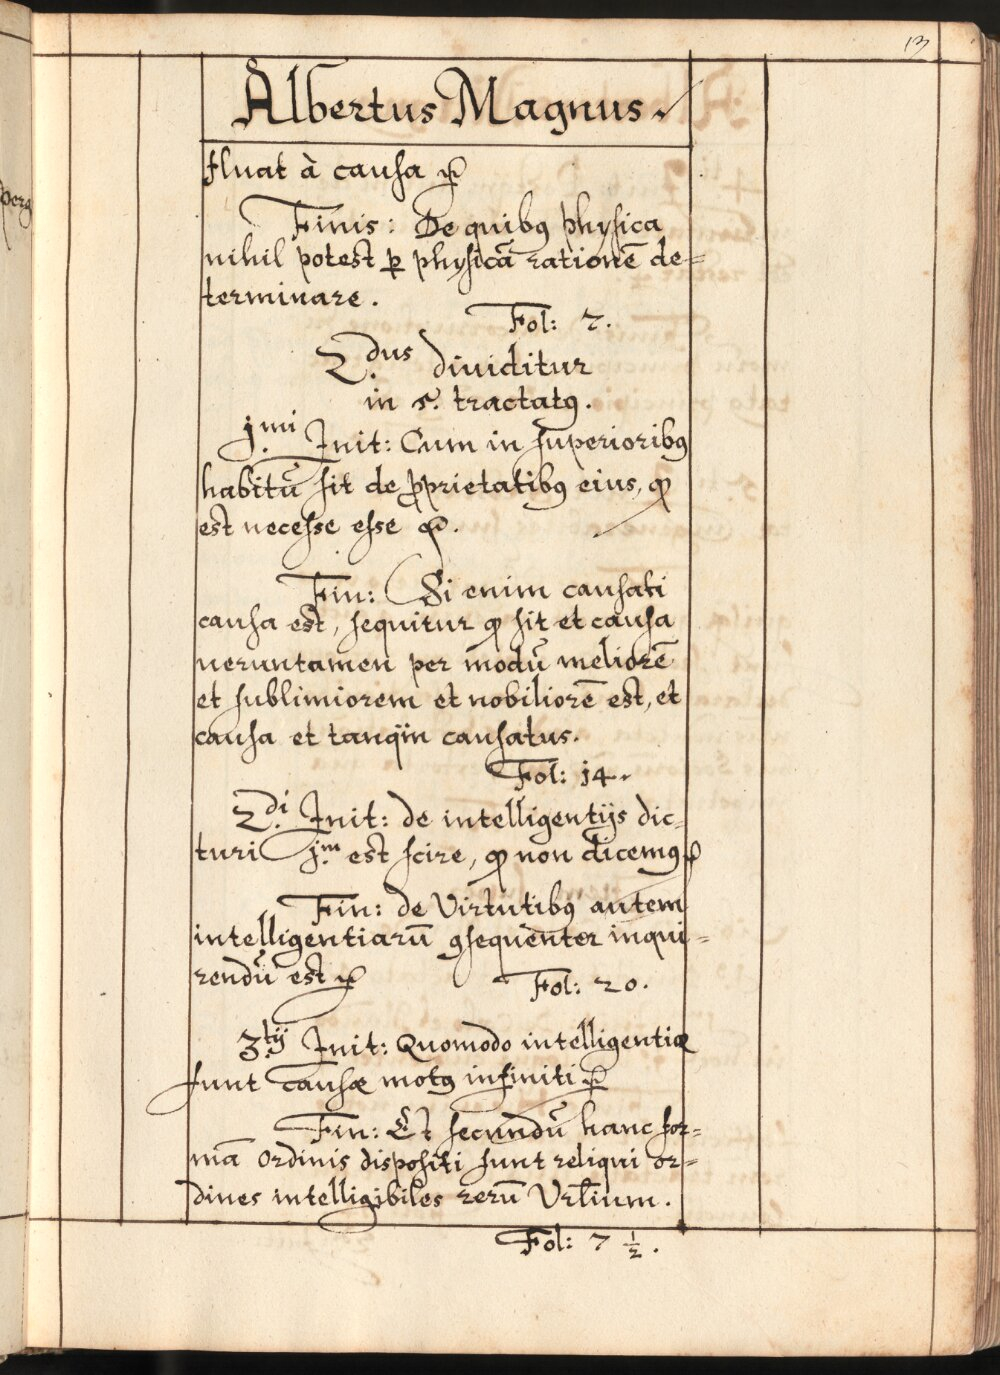 13
Albertus Magnus.
fluat à causa ꝛc
Finis: De quibꝰ physica
nihil potest ꝑ physicā rationē de=
terminare.
Fol: 7.
2.dus diuiditur
in 5. tractatꝰ.
j.mi Init: Cum in superioribꝰ
habitū sit de ꝓprietatibꝰ eius, qꝫ
est necesse esse ꝛc.
Fin: Si enim causati
causa est, sequitur qꝫ sit et causa
ueruntamen per modū meliorē
et sublimiorem et nobiliorē est, et
causa et tanq̈m causatus.
Fol: 14.
2.di Init: de intelligentijs dic=
turi j.m est scire, qꝫ non dicemꝰ ꝛc
Fin: de Virtutibꝰ autem
intelligentiarū ꝯsequenter inqui=
rendū est ꝛc
Fol: 20.
3.tij Init: Quomodo intelligentiæ
sunt causæ motꝰ infiniti ꝛc
Fin: Et secundū hanc for=
mā ordinis dispositi sunt reliqui or=
dines intelligibiles rerū Vrl̄ium.
Fol: 7 ½.